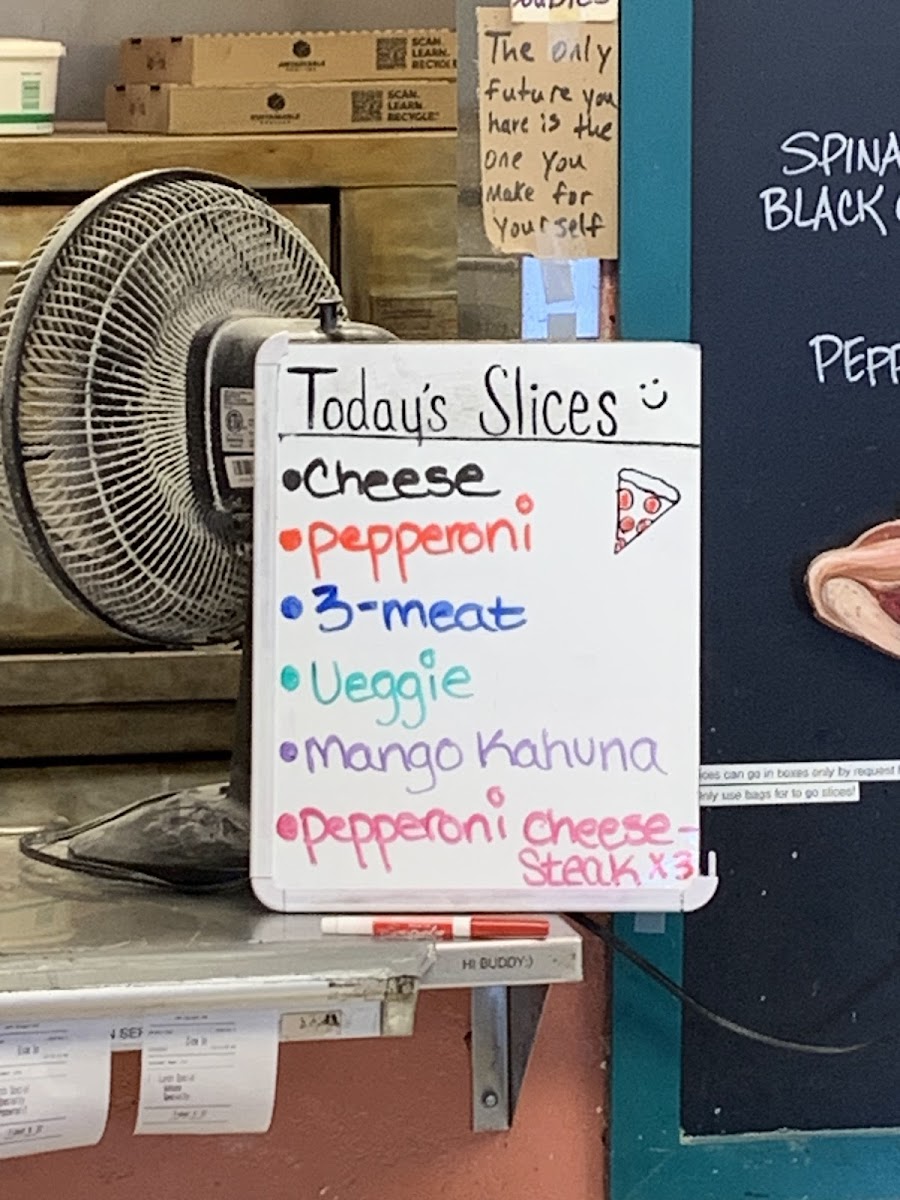 SCAN.
LEARN.
RECYCLE
SCAN.
LEARN.
RECYCLE
The only
future you
have is the
one you
Make for
Yourself
SPINA
BLACK
PEPP
Today's Slices
•Cheese
•pepperoni
•3-meat
•Veggie
•Mango Kahuna
•pepperoni cheese-
steak x3
can go in boxes only by request
only use bags for to go slices!
HI BUDDY:)